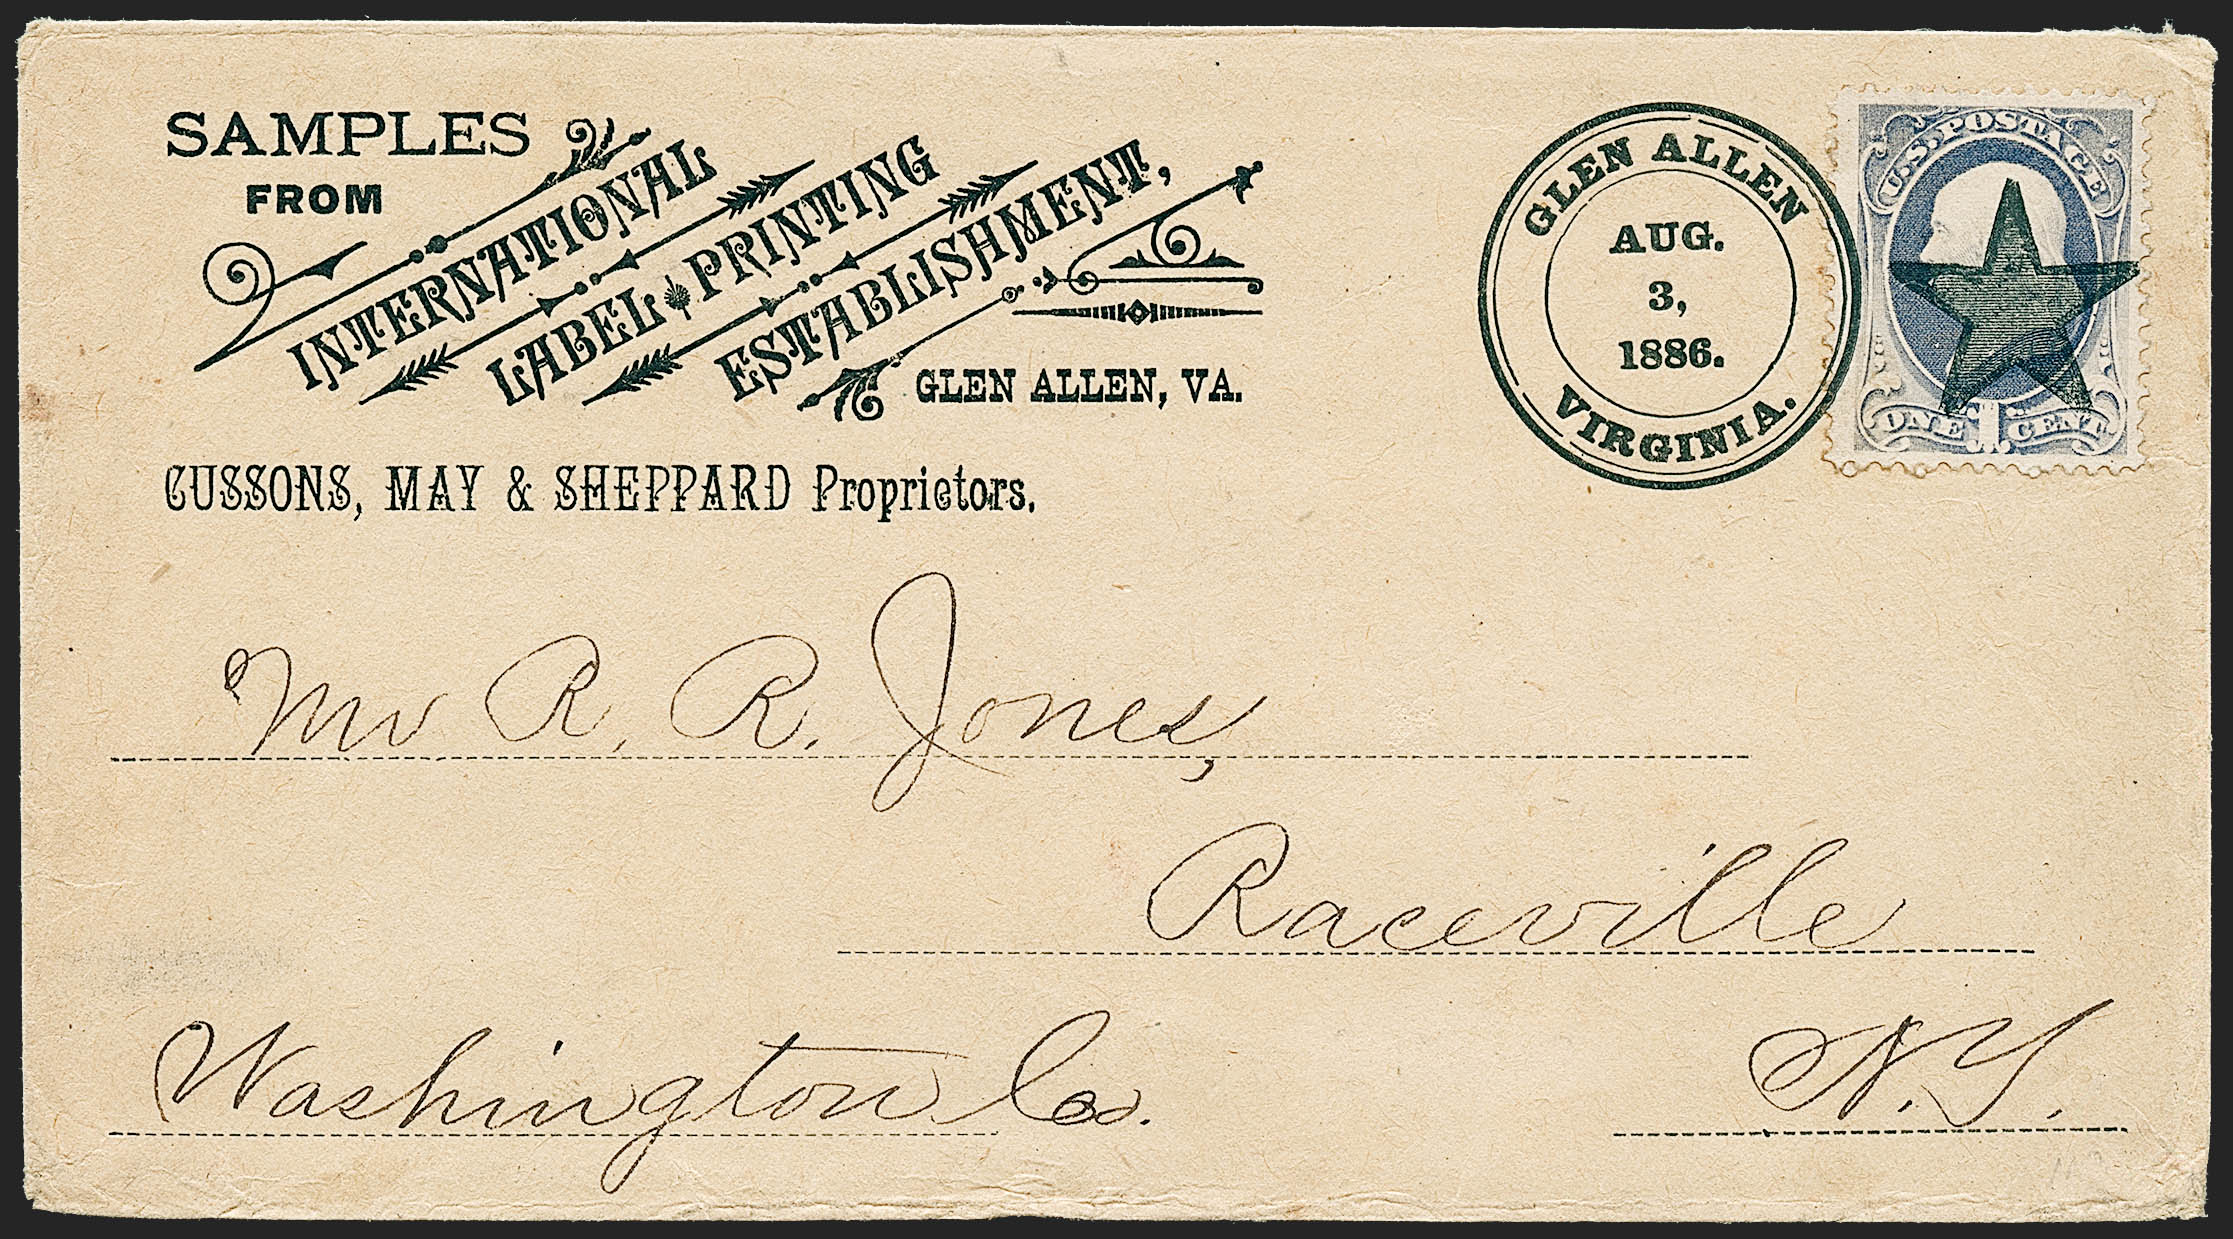 SAMPLES
FROM
INTERNATIONAL
LABEL PRINTING
ESTABLISHMENT,
GLEN ALLEN, VA.
CUSSONS, MAY & SHEPPARD Proprietors.
GLEN ALLEN
AUG.
3,
1886.
VIRGINIA.
U.S. POSTAGE
ONE 1 CENT
Mr R. R. Jones,
Raceville
Washington Co.
N.Y.